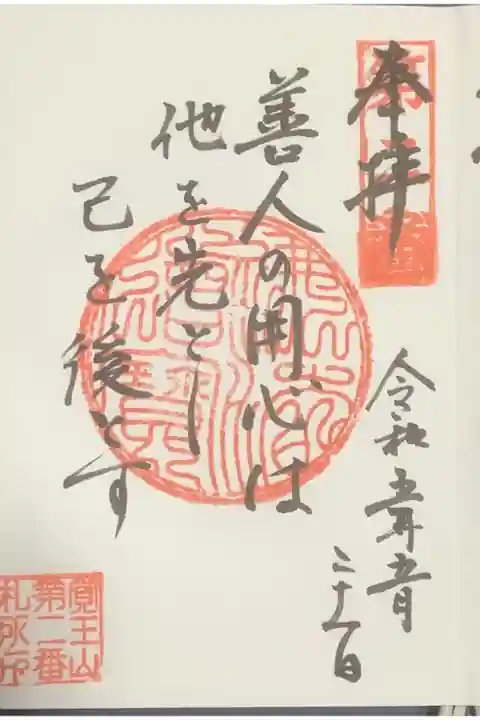 奉拝
善人の用心は
他を先とし
己を後とす
令和五年五月
二十一日
覚王山
第二番
札所